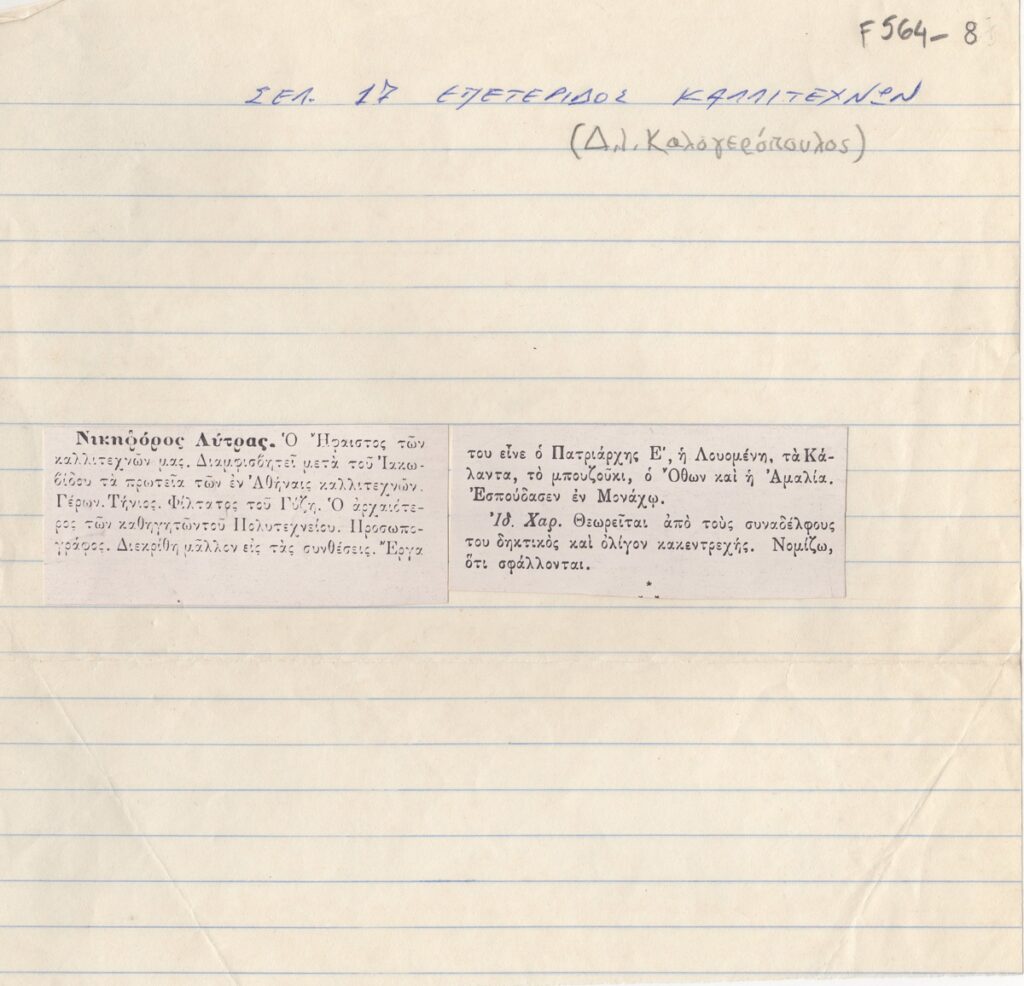 F564-8
ΣΕΛ. 17 ΕΠΕΤΕΡΙΔΟΣ ΚΑΛΛΙΤΕΧΝΩΝ
(Δ.Ι. Καλογερόπουλος)
Νικηφόρος Λύτρας. Ὁ Ἥφαιστος τῶν
καλλιτεχνῶν μας. Διαμφισβητεῖ μετὰ τοῦ Ἰακω-
βίδου τὰ πρωτεῖα τῶν ἐν Ἀθήναις καλλιτεχνῶν.
Γέρων. Τήνιος. Φίλτατος τοῦ Γύζη. Ὁ ἀρχαιότε-
ρος τῶν καθηγητῶντοῦ Πολυτεχνείου. Προσωπο-
γράφος. Διεκρίθη μᾶλλον εἰς τὰς συνθέσεις. Ἔργα
του εἶνε ὁ Πατριάρχης Ε΄, ἡ Λουομένη, τὰ Κά-
λαντα, τὸ μπουζοῦκι, ὁ Ὄθων καὶ ἡ Ἀμαλία.
Ἐσπούδασεν ἐν Μονάχῳ.
Ἰδ. Χαρ. Θεωρεῖται ἀπὸ τοὺς συναδέλφους
του δηκτικὸς καὶ ὀλίγον κακεντρεχής. Νομίζω,
ὅτι σφάλλονται.